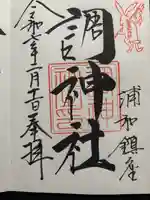 浦和鎮座
調神社
令和七年二月十一日奉拝